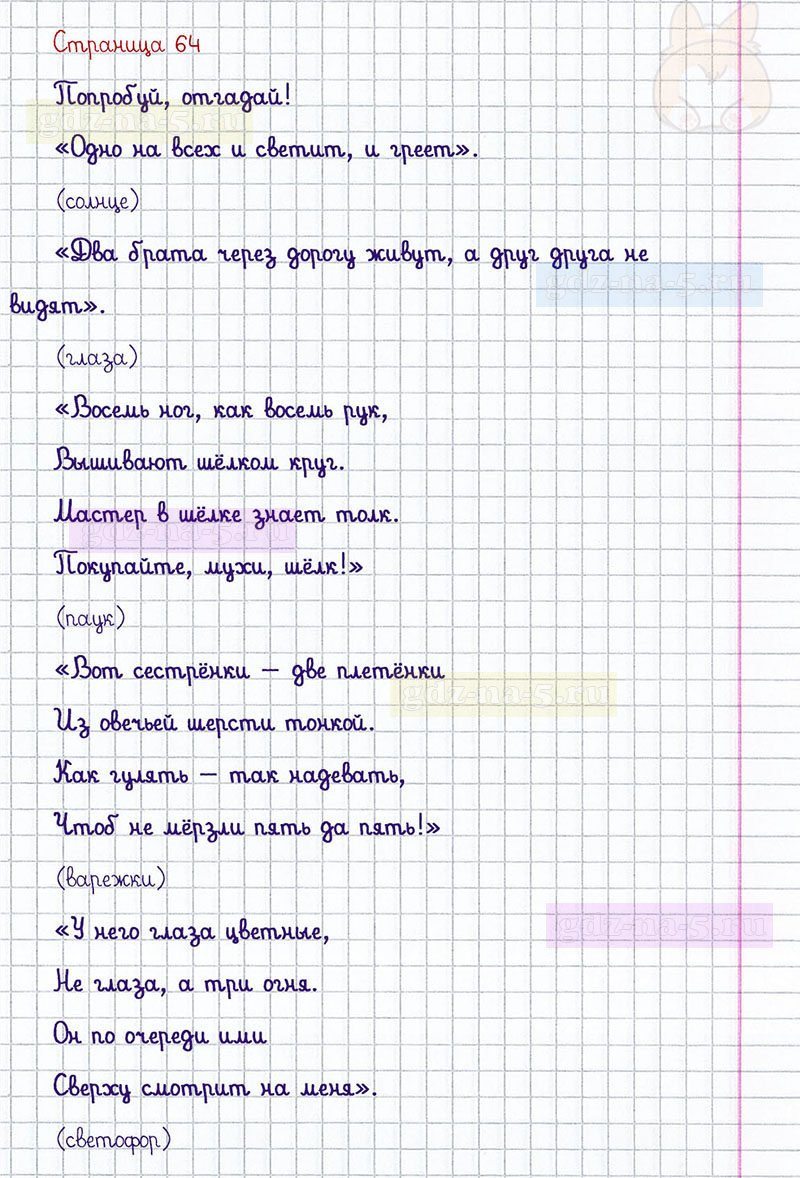 Страница 64
Попробуй, отгадай!
gdz-na-5.ru
«Одно на всех и светит, и греет».
(солнце)
«Два брата через дорогу живут, а друг друга не
gdz-na-5.ru
видят».
(глаза)
«Восемь ног, как восемь рук,
Вышивают шёлком круг.
Мастер в шёлке знает толк.
gdz-na-5.ru
Покупайте, мухи, шёлк!»
(паук)
«Вот сестрёнки – две плетёнки
gdz-na-5.ru
Из овечьей шерсти тонкой.
Как гулять – так надевать,
Чтоб не мёрзли пять да пять!»
(варежки)
«У него глаза цветные,
gdz-na-5.ru
Не глаза, а три огня.
Он по очереди ими
Сверху смотрит на меня».
(светофор)